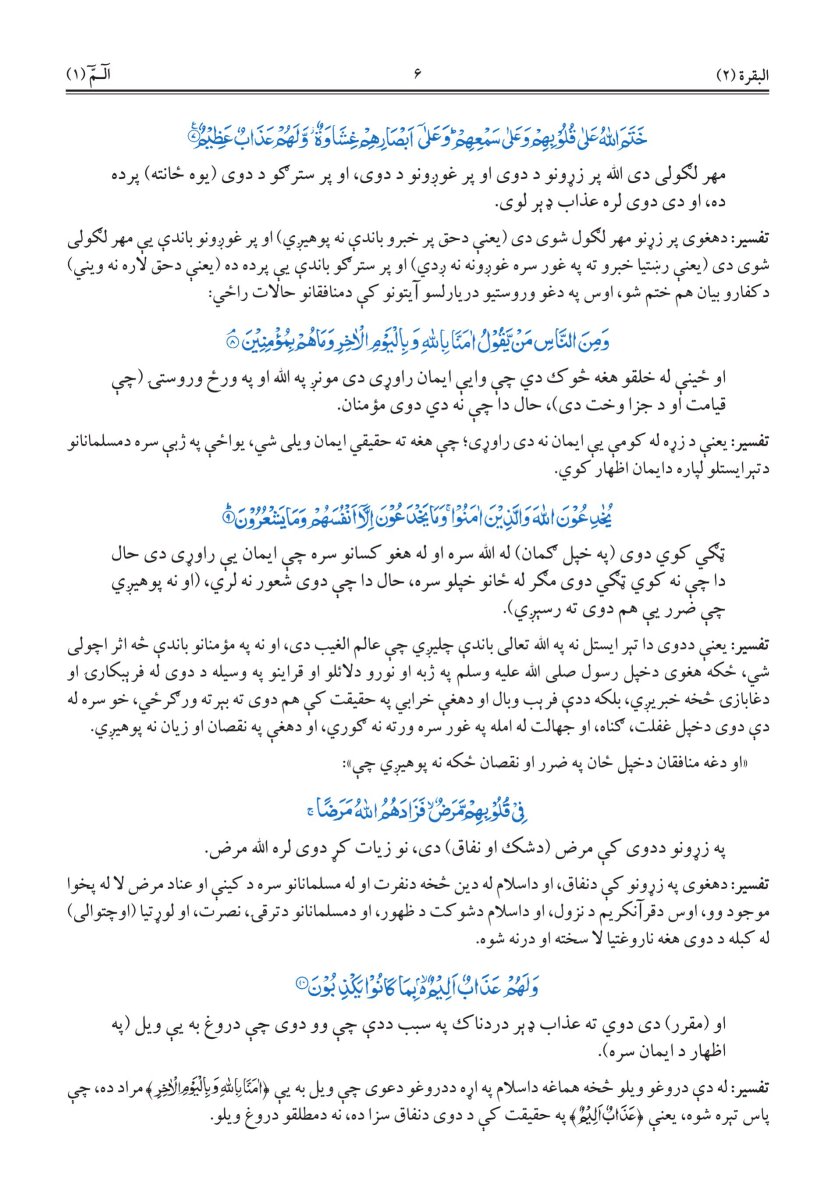 البقرة (۲)
۶
الٓـمّٓ (۱)
خَتَمَ اللّٰهُ عَلٰى قُلُوْبِهِمْ وَعَلٰى سَمْعِهِمْ ؕ وَعَلٰٓى اَبْصَارِهِمْ غِشَاوَةٌ ؗ وَّلَهُمْ عَذَابٌ عَظِيْمٌ ۷
مهر لګولی دی الله پر زړونو د دوی او پر غوږونو د دوی، او پر سترګو د دوی (يوه ځانته) پرده
ده، او دی دوی لره عذاب ډېر لوی.
تفسير: دهغوی پر زړنو مهر لګول شوی دی (يعنې دحق پر خبرو باندې نه پوهيږي) او پر غوږونو باندې يې مهر لګولی
شوی دی (يعنې رښتيا خبرو ته په غور سره غوږونه نه ږدي) او پر سترګو باندې يې پرده ده (يعنې دحق لاره نه ويني)
دکفارو بيان هم ختم شو، اوس په دغو وروستيو دريارلسو آيتونو کې دمنافقانو حالات راځي:
وَمِنَ النَّاسِ مَنْ يَّقُوْلُ اٰمَنَّا بِاللّٰهِ وَبِالْيَوْمِ الْاٰخِرِ وَمَا هُمْ بِمُؤْمِنِيْنَ ۸
او ځينې له خلقو هغه څوک دي چې وايي ايمان راوړی دی مونږ په الله او په ورځ وروستۍ (چې
قيامت او د جزا وخت دی)، حال دا چې نه دي دوی مؤمنان.
تفسير: يعنې د زړه له کومې يې ايمان نه دی راوړی؛ چې هغه ته حقيقي ايمان ويلی شي، يواځې په ژبې سره دمسلمانانو
دتېرايستلو لپاره دايمان اظهار کوي.
يُخٰدِعُوْنَ اللّٰهَ وَالَّذِيْنَ اٰمَنُوْا ۚ وَمَا يَخْدَعُوْنَ اِلَّآ اَنْفُسَهُمْ وَمَا يَشْعُرُوْنَ ؕ ۹
ټګي کوي دوی (په خپل ګمان) له الله سره او له هغو کسانو سره چې ايمان يې راوړی دی حال
دا چې نه کوي ټګي دوی مګر له ځانو خپلو سره، حال دا چې دوی شعور نه لري، (او نه پوهيږي
چې ضرر يې هم دوی ته رسېږي).
تفسير: يعنې ددوی دا تېر ايستل نه په الله تعالی باندې چليږي چې عالم الغيب دی، او نه په مؤمنانو باندې څه اثر اچولی
شي، ځکه هغوی دخپل رسول صلی الله عليه وسلم په ژبه او نورو دلائلو او قراينو په وسيله د دوی له فرېبکارۍ او
دغابازۍ څخه خبريږي، بلکه ددې فرېب وبال او دهغې خرابي په حقيقت کې هم دوی ته بېرته ورګرځي، خو سره له
دې دوی دخپل غفلت، ګناه، او جهالت له امله په غور سره ورته نه ګوري، او دهغې په نقصان او زيان نه پوهيږي.
«او دغه منافقان دخپل ځان په ضرر او نقصان ځکه نه پوهيږي چې»:
فِىْ قُلُوْبِهِمْ مَّرَضٌ ۙ فَزَادَهُمُ اللّٰهُ مَرَضًا ۚ
په زړونو ددوی کې مرض (دشک او نفاق) دی، نو زيات کړ دوی لره الله مرض.
تفسير: دهغوی په زړونو کې دنفاق، او داسلام له دين څخه دنفرت او له مسلمانانو سره د کينې او عناد مرض لا له پخوا
موجود وو، اوس دقرآنکريم د نزول، او داسلام دشوکت د ظهور، او دمسلمانانو دترقۍ، نصرت، او لوړتيا (اوچتوالی)
له کبله د دوی هغه ناروغتيا لا سخته او درنه شوه.
وَلَهُمْ عَذَابٌ اَلِيْمٌۢ ۙ بِمَا كَانُوْا يَكْذِبُوْنَ ۱۰
او (مقرر) دی دوي ته عذاب ډېر دردناک په سبب ددې چې وو دوی چې دروغ به يې ويل (په
اظهار د ايمان سره).
تفسير: له دې دروغو ويلو څخه هماغه داسلام په اړه ددروغو دعوی چې ويل به يې ﴿اٰمَنَّا بِاللّٰهِ وَبِالْيَوْمِ الْاٰخِرِ﴾ مراد ده، چې
پاس تېره شوه، يعنې ﴿عَذَابٌ اَلِيْمٌ﴾ په حقيقت کې د دوی دنفاق سزا ده، نه دمطلقو دروغ ويلو.